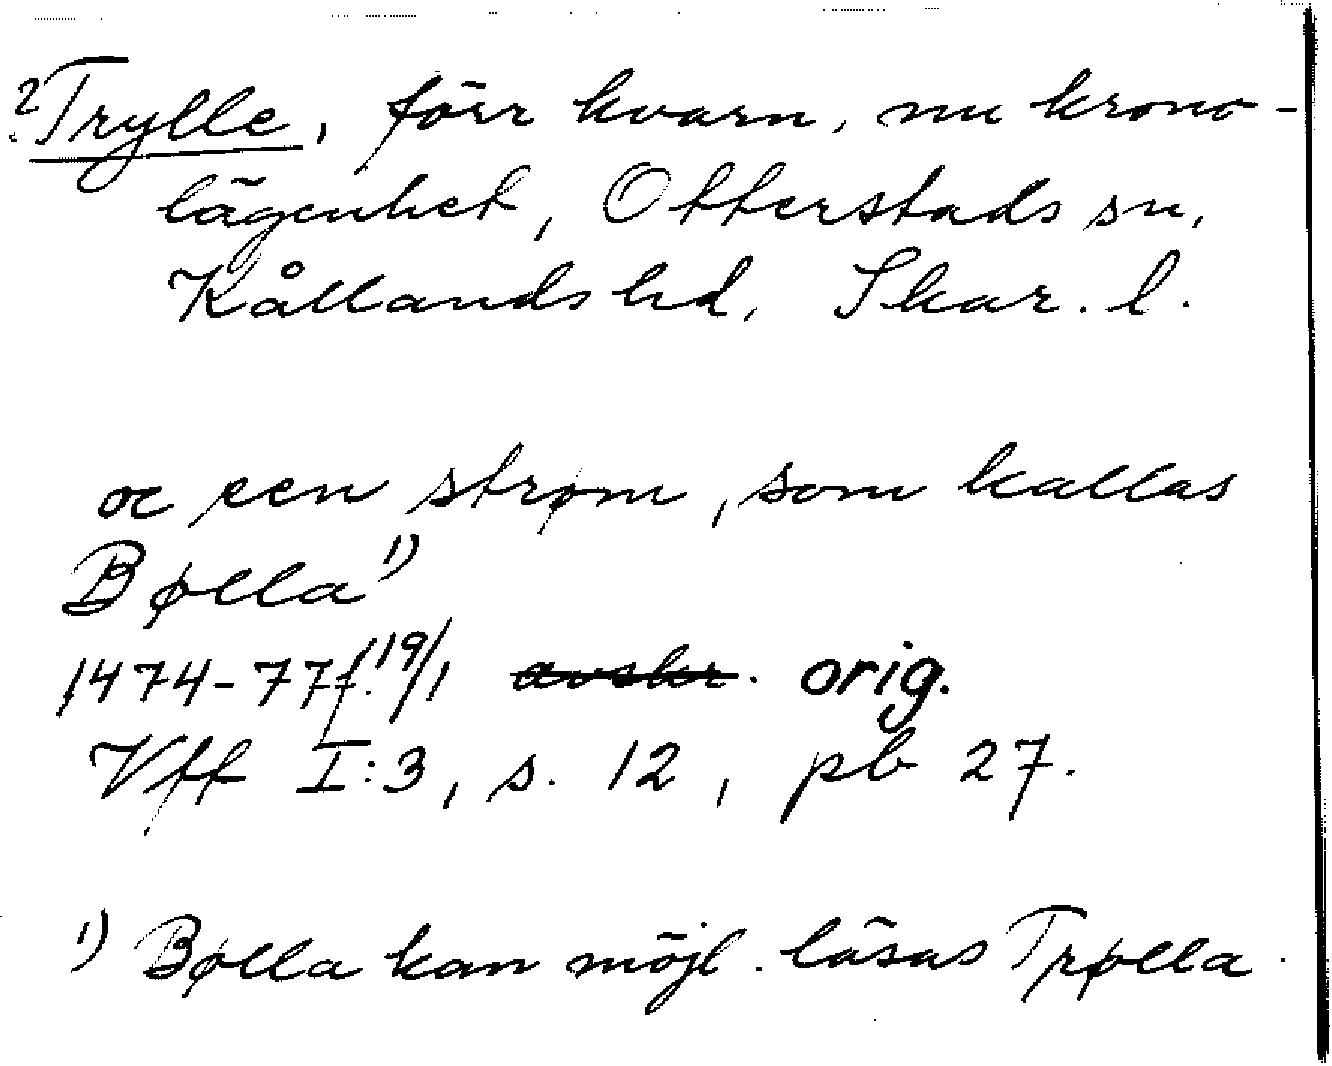 ? Trylle, förr kvarn, nu krono-
lägenhet, Otterstads sn,
Kållands hd, Skar. l.
oc een strøm, som kallas
Bølla 1)
1474-77 f. 19/1 avskr. orig.
Vff I:3, s. 12, pb 27.
1) Bølla kan möjl. läsas Trølla.